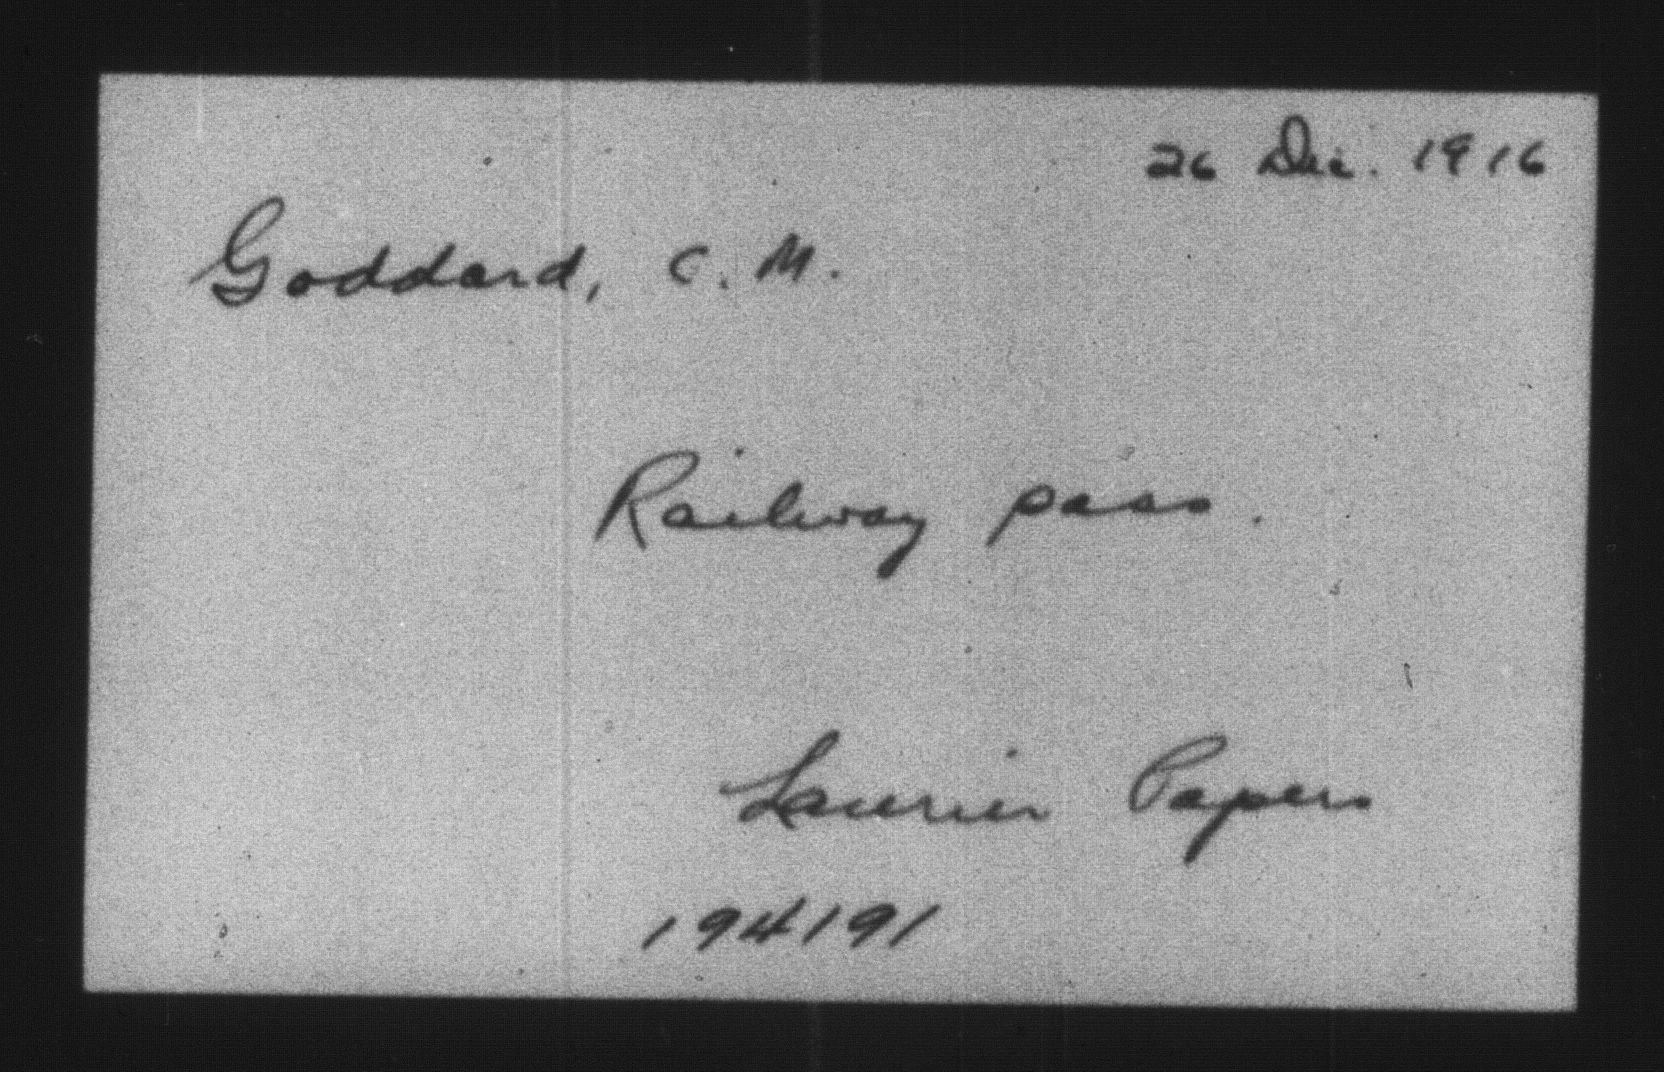 26 Dec. 1916
Goddard, C. M.
Railway pass.
Laurier Papers
194191